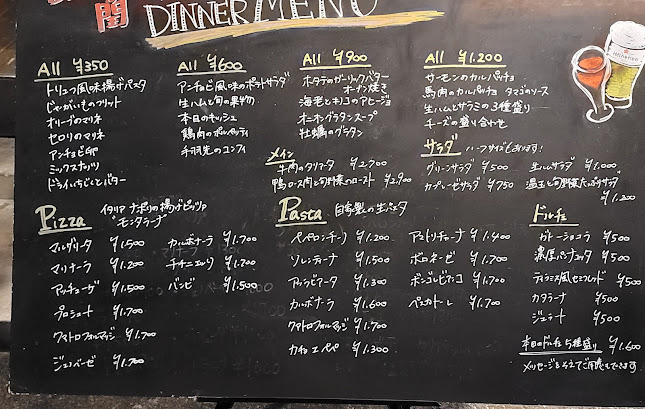 闇
DINNER MENU
All ¥350
トリュフ風味揚げパスタ
じゃがいものフリット
オリーブのマリネ
セロリのマリネ
アンチョビ卵
ミックスナッツ
ドライいちじくとバター
All ¥600
アンチョビ風味のポテトサラダ
生ハムと旬の果物
本日のキッシュ
鶏肉のポルペッティ
手羽先のコンフィ
All ¥900
ホタテのガーリックバター
オーブン焼き
海老とキノコのアヒージョ
オニオングラタンスープ
牡蠣のグラタン
All ¥1.200
サーモンのカルパッチョ
馬肉のカルパッチョ タマゴのソース
生ハムとサラミの3種盛り
チーズの盛り合わせ
メイン
牛肉のタリアータ ¥2.700
鴨ロース肉と旬野菜のロースト ¥2.900
サラダ ハーフサイズもあります!
グリーンサラダ ¥500
カプレーゼサラダ ¥750
生ハムサラダ ¥1.000
温玉と旬野菜たっぷりサラダ
¥1.200
Pizza イタリア ナポリの揚げピッツァ
"モンタナーラ"
マルゲリータ ¥1.500
マリナーラ ¥1.200
アッチューガ ¥1.500
プロシュート ¥1.700
クアトロフォルマッジ ¥1.700
ジェノベーゼ ¥1.700
カルボナーラ ¥1.700
チチニエッリ ¥1.700
ビスマルク ¥1.500
Pasta 自家製の生パスタ
ペペロンチーノ ¥1.200
ソレンティーナ ¥1.500
アラビアータ ¥1.300
カルボナーラ ¥1.600
クアトロフォルマッジ ¥1.700
カチョエペペ ¥1.300
アマトリチャーナ ¥1.400
ボロネーゼ ¥1.700
ボンゴレビアンコ ¥1.700
ペスカトーレ ¥1.700
ドルチェ
ガトーショコラ ¥500
濃厚パンナコッタ ¥500
ティラミス風セミフレッド ¥500
カタラーナ ¥500
ジェラート ¥500
本日のドルチェ5種盛り ¥1.600
メッセージをそえてご用意できます